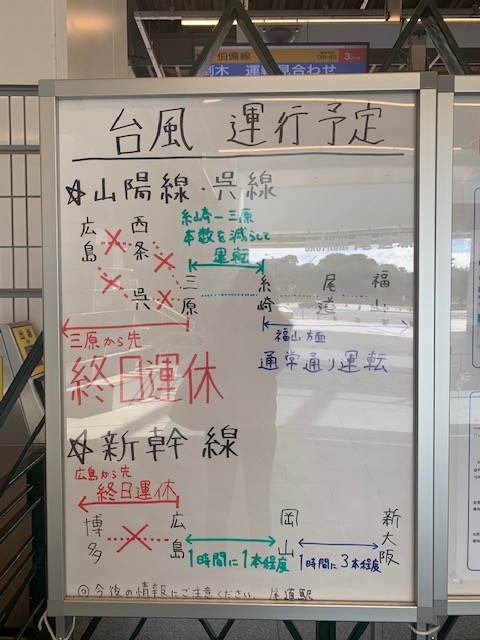 伯備線
運転見合わせ
台風 運行予定
☆山陽線・呉線
糸崎ー三原
本数を減らして
運転
広島 西条
呉 三原 糸崎 尾道 福山
三原から先
終日運休
福山方面
通常通り運転
☆新幹線
広島から先
終日運休
博多 広島 岡山 新大阪
1時間に1本程度
1時間に3本程度
◎今後の情報にご注意ください 尾道駅